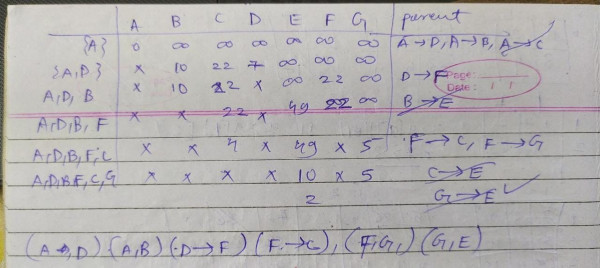 A B C D E F G parent
{A} 0 ∞ ∞ ∞ ∞ ∞ ∞ A→D, A→B, A→C
{A,D} × 10 22 7 ∞ ∞ ∞
A,D, B × 10 22 × ∞ 22 ∞ D→F
Page:
Date: / /
A,D,B,F × × 22 × 49 22 ∞ B→E
A,D,B,F,C × × 4 × 49 × 5 F→C, F→G
A,D,B,F,C,G × × × × 10 × 5 C→E
2 G→E
(A→,D) (A,B) (D→F) (F→C), (F,G,) (G,E)